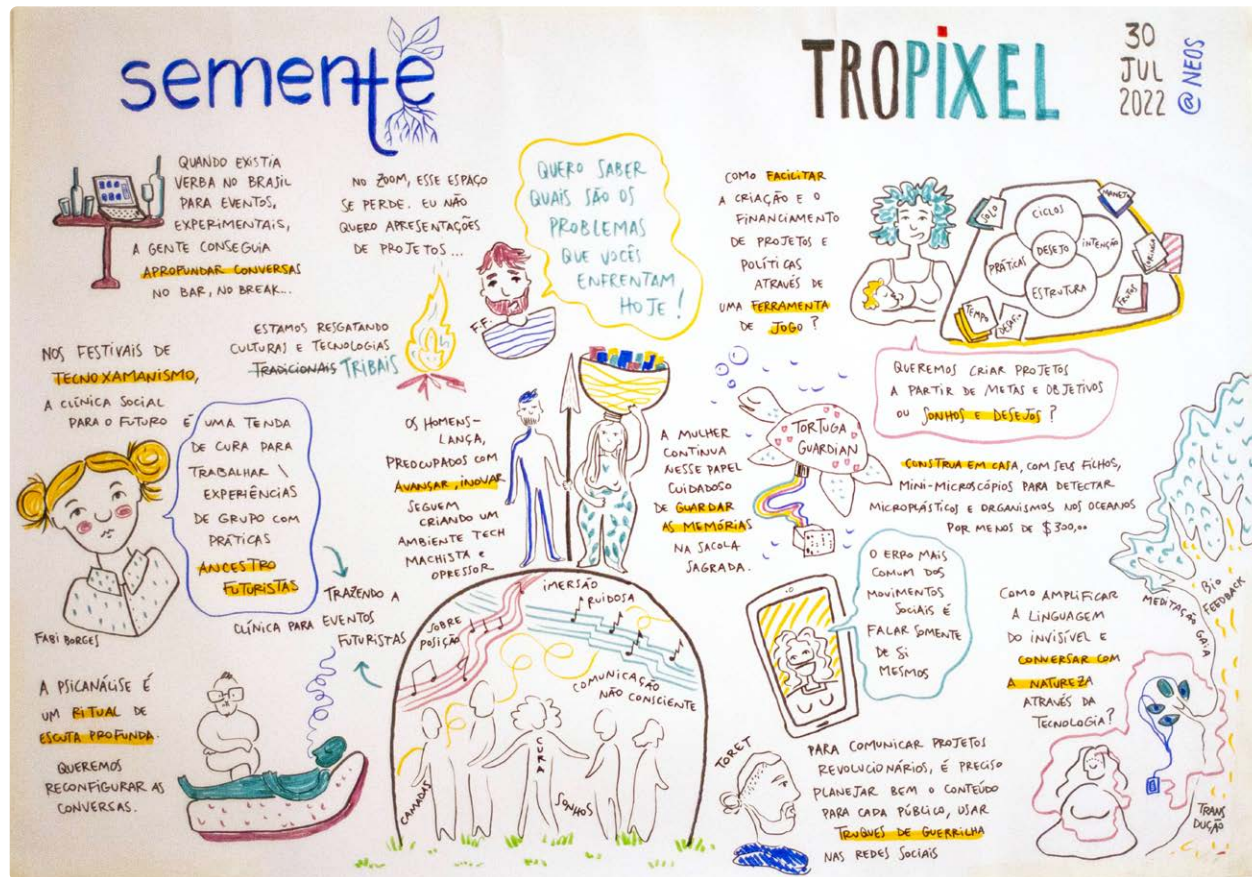 semente
TROPIXEL
30
JUL
2022
@ NEOS
QUANDO EXISTIA
VERBA NO BRASIL
PARA EVENTOS,
EXPERIMENTAIS,
A GENTE CONSEGUIA
APROFUNDAR CONVERSAS
NO BAR, NO BREAK...
NO ZOOM, ESSE ESPAÇO
SE PERDE. EU NÃO
QUERO APRESENTAÇÕES
DE PROJETOS...
F.F.
QUERO SABER
QUAIS SÃO OS
PROBLEMAS
QUE VOCÊS
ENFRENTAM
HOJE!
COMO FACILITAR
A CRIAÇÃO E O
FINANCIAMENTO
DE PROJETOS E
POLÍTICAS
ATRAVÉS DE
UMA FERRAMENTA
DE JOGO?
SOLO
CICLOS
MANETA
PRÁTICAS
DESEJO
INTENÇÃO
CORINGA
ESTRUTURA
TEMPO
DESAFIO
FRUTOS
QUEREMOS CRIAR PROJETOS
A PARTIR DE METAS E OBJETIVOS
OU SONHOS E DESEJOS?
ESTAMOS RESGATANDO
CULTURAS E TECNOLOGIAS
TRADICIONAIS TRIBAIS
NOS FESTIVAIS DE
TECNOXAMANISMO,
A CLÍNICA SOCIAL
PARA O FUTURO
É UMA TENDA
DE CURA PARA
TRABALHAR \
EXPERIÊNCIAS
DE GRUPO COM
PRÁTICAS
ANCESTRO
FUTURISTAS
FABI BORGES
TRAZENDO A
CLÍNICA PARA EVENTOS
FUTURISTAS
OS HOMENS-
LANÇA,
PREOCUPADOS COM
AVANSAR, INOVAR
SEGUEM
CRIANDO UM
AMBIENTE TECH
MACHISTA e
OPRESSOR
A MULHER
CONTINUA
NESSE PAPEL
CUIDADOSO
DE GUARDAR
AS MEMÓRIAS
NA SACOLA
SAGRADA.
TORTUGA
GUARDIAN
CONSTRUA EM CASA, COM SEUS FICHOS,
MINI-MICROSCÓPIOS PARA DETECTAR
MICROPLÁSTICOS E ORGANISMOS NOS OCEANOS
POR MENOS DE $300,00
O ERRO MAIS
COMUM DOS
MOVIMENTOS
SOCIAIS É
FALAR SOMENTE
DE SI
MESMOS
COMO AMPLIFICAR
A LINGUAGEM
DO INVISÍVEL E
CONVERSAR COM
A NATUREZA
ATRAVÉS DA
TECNOLOGIA?
MEDITAÇÃO GAIA
BIO
FEEDBACK
TRANS
DUÇÃO
A PSICANÁLISE É
UM RITUAL DE
ESCUTA PROFUNDA.
QUEREMOS
RECONFIGURAR AS
CONVERSAS.
IMERSÃO
RUIDOSA
SOBRE
POSIÇÃO
COMUNICAÇÃO
NÃO CONSCIENTE
CAMADAS
CURA
SONHOS
TORET
PARA COMUNICAR PROJETOS
REVOLUCIONÁRIOS, É PRECISO
PLANEJAR BEM O CONTEÚDO
PARA CADA PÚBLICO, USAR
TRUQUES DE GUERRILHA
NAS REDES SOCIAIS